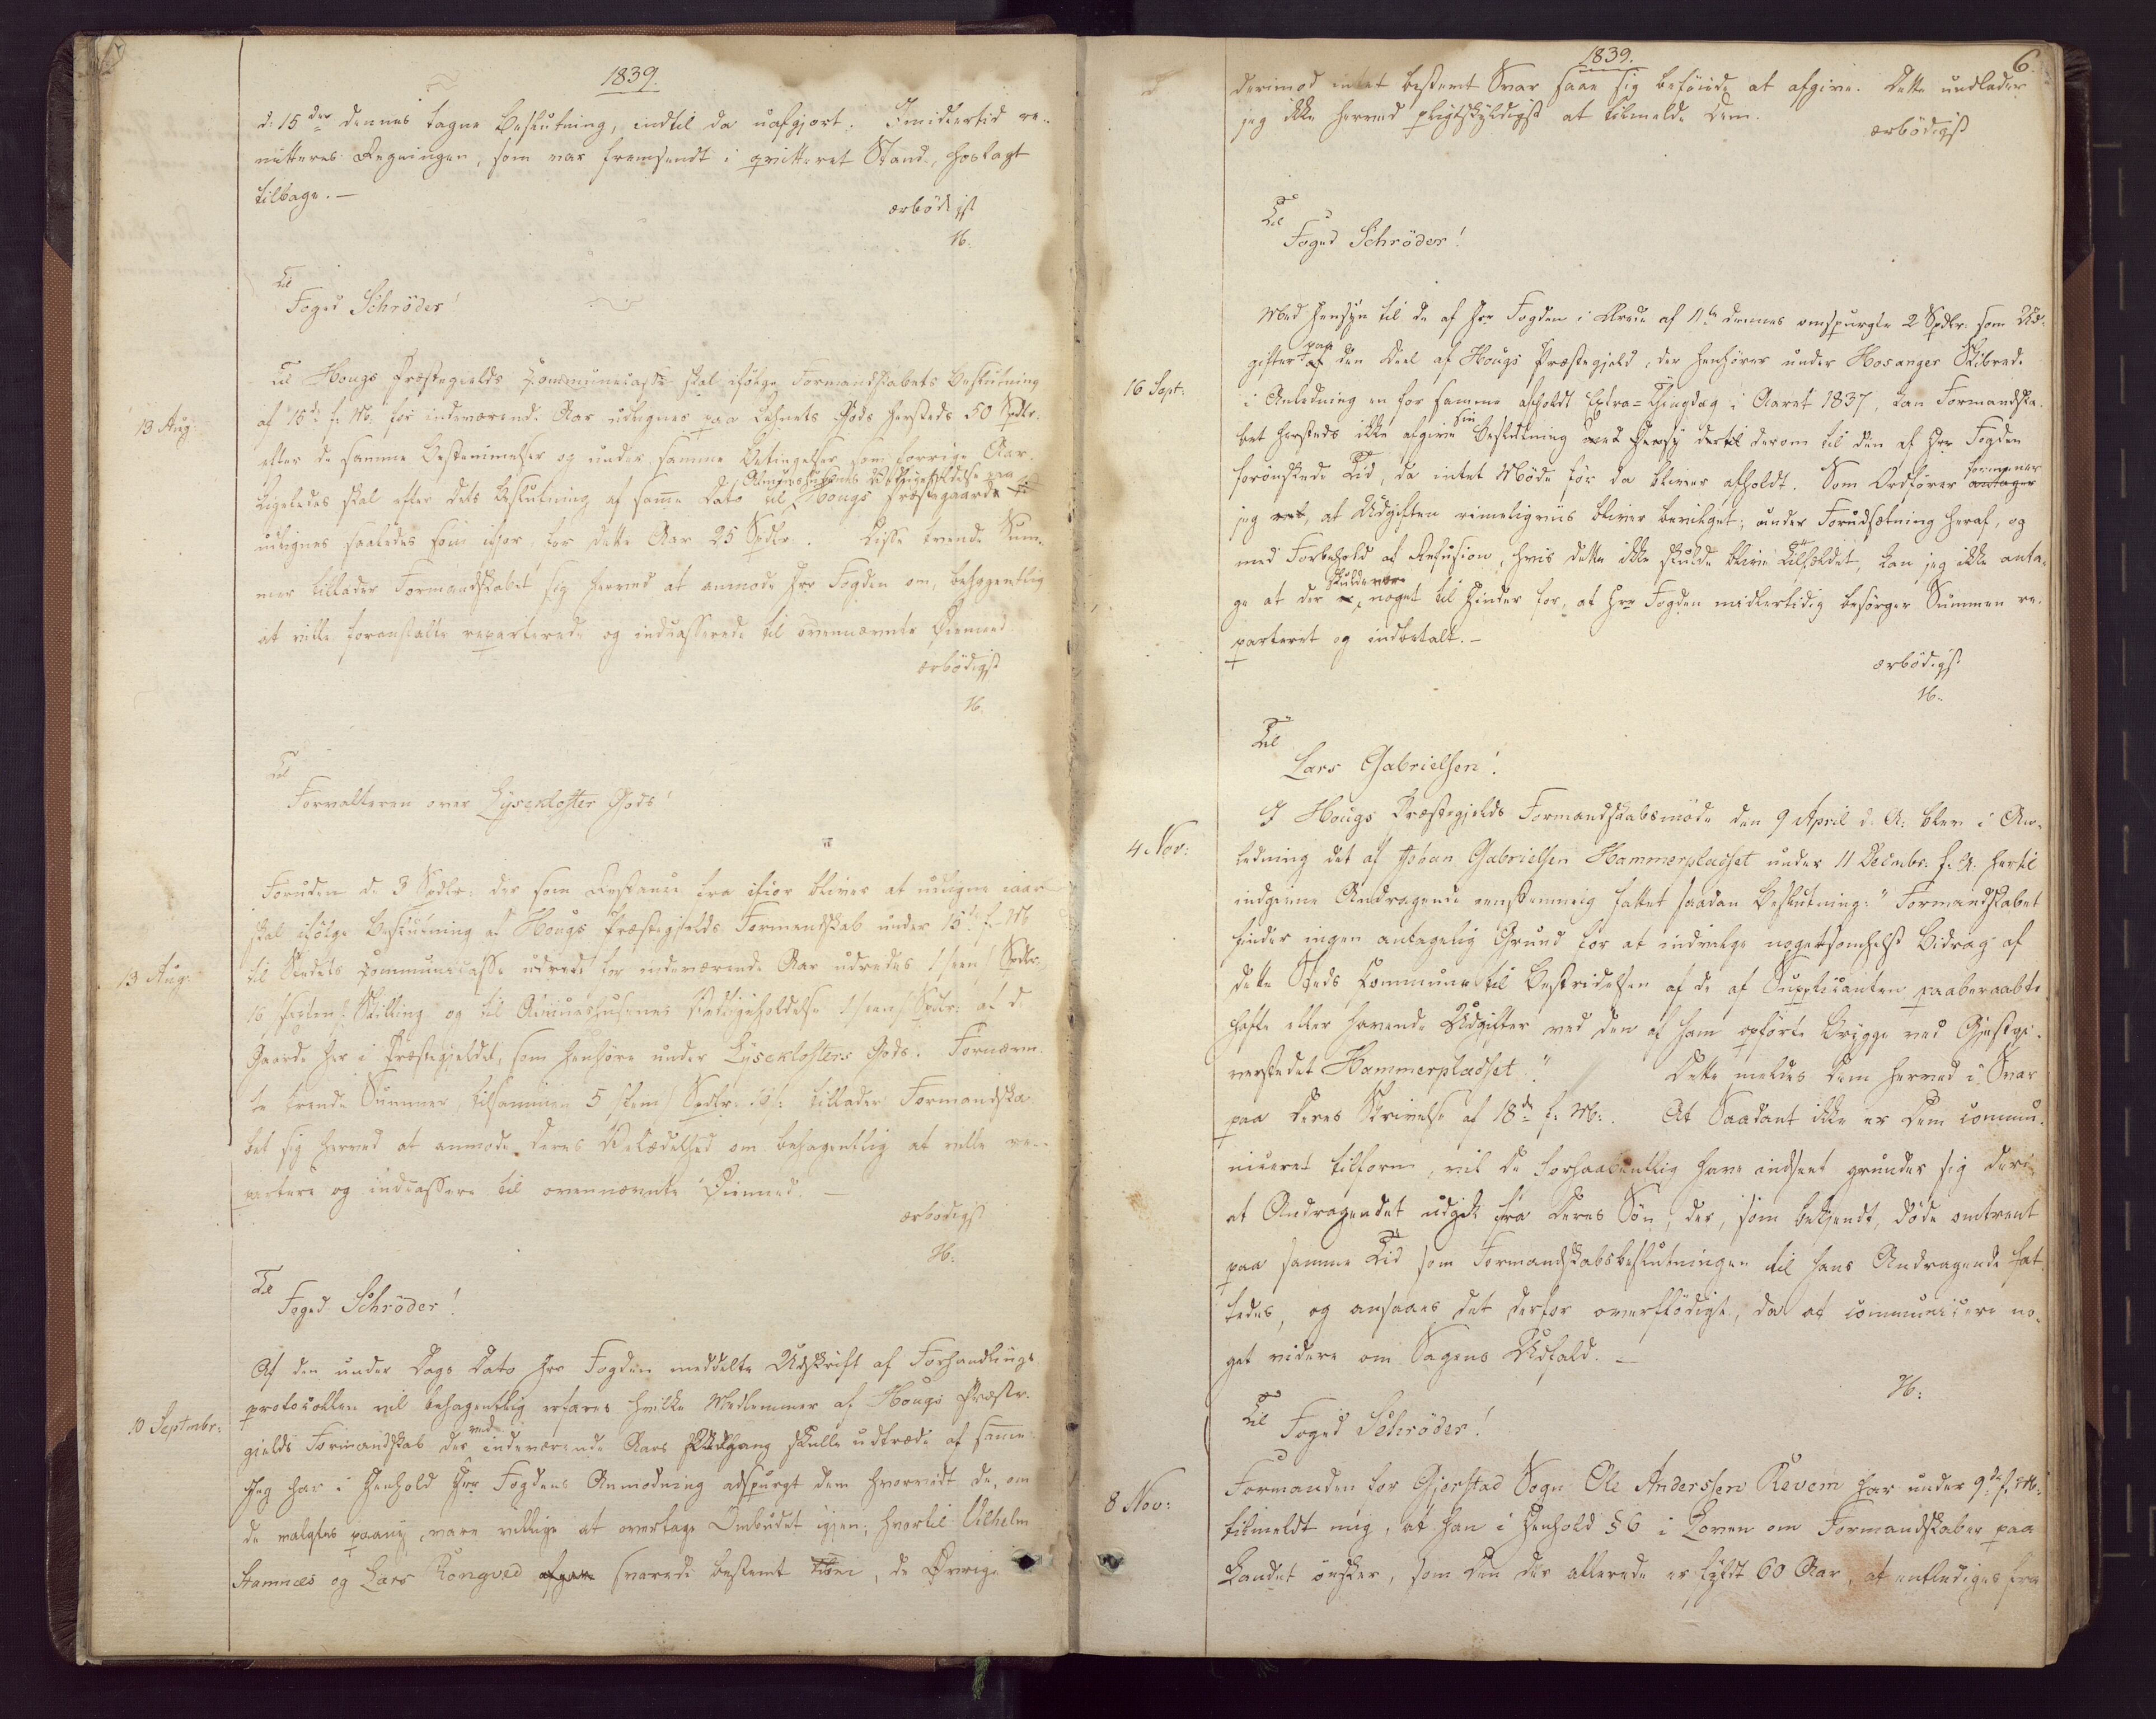 1839.
d: 15 der dennes tagne Beslutning, indtil da uafgjort. Imidlertid re-
mitteres Regningen, som var fremsendt i qvitteret Stand, hoslagt
tilbage. —
ærbödigst
H.
Til
Foged Schröder!
13 Aug:
Til Hougs Præstegjelds Communecasse skal ifölge Formandskabets Beslutning
af 15de f. M. for indeværende Aar udlignes paa Lehnets Gods hersteds 50 Spdlr.
efter de samme Bestemmelser og under samme Betingelser som forrige Aar.
Ligeledes skal efter dets Beslutning af samme Dato til Almueshusenes Vedligeholdelse paa Hougs Præstegaard
udlignes saaledes som ifjor, for dette Aar 25 Spdlr. Disse tvende Sum-
mer tillader Formandskabet sig herved at anmode Hrr Fogden om, behagentlig
at ville foranstalte reparterede og indcasserede til ovennævnte Öiemed
ærbödigst
H.
Til
Forvalteren over Lysekloster Gods!
13 Aug:
Foruden de 3 Spdlr: der som Restance fra ifior bliver at udligne iaar
skal ifölge Beslutning af Hougs Præstegjelds Formandskab under 15de f. M.
til Stedets Communecasse udredes for indeværende Aar udredes 1 /een/ Spdlr,
16 /sexten/ Skilling og til Almueshusenes Vedligeholdelse 1 /een/ Spdlr: af d
Gaarde her i Præstegjeldet, som henhöre under Lyseklosters Gods. Fornævn-
te trende Summer tilsammen 5 /fem/ Spdlr. 16 s: tillader Formandska-
bet sig herved at anmode Deres Velædelhed om behagentlig at ville re-
partere og indcassere til ovennævnte Öiemed. —
ærbödigst
H:
Til
Foged Schröder!
10 Septmbr:
Af den under Dags Dato Hrr Fogden meddelte Udskrift af Forhandlings
protocollen vil behagentlig erfares hvilke Medlemmer af Hougs Præste-
gjelds Formandskab der ved indeværende Aars Udgang skulle udtræde af samme.
Jeg har i Henhold Hrr Fogdens Anmodning adspurgt dem hvorvidt de, om
de valgtes paany, vare villige at overtage Ombudet igjen; hvortil Vilhelm
Stamnæs og Lars Rongved svarede bestemt Nei, de Övrige
1839.
6.
derimod intet bestemt Svar saae sig beföiede at afgive. Dette undlader
jeg ikke herved pligtskyldigst at tilmelde Dem.
ærbödigst
Til
Foged Schröder!
16 Sept:
Med Hensyn til de af Hrr Fogden i Brev af 11te dennes omspurgte 2 Spdlr. som Ud-
gifter paa den Deel af Hougs Præstegjeld, der henhörer under Hosanger Skibrede
i Anledning en for samme afholdt Extra-Thingdag i Aaret 1837, kan Formandska-
bet hersteds ikke afgive sin Beslutning med Hensy dertil derom til den af Hrr Fogden
forönskede Tid, da intet Möde för da bliver afholdt. Som Ordförer formener antager
jeg vel, at Udgiften rimeligviis bliver bevilget; under Forudsætning heraf, og
med Forbehold af Refusion, hvis dette ikke skulde blive Tilfældet, kan jeg ikke anta-
ge at der skulde være noget til Hinder for, at Hrr Fogden midlertidig besörger Summen re-
parteret og indbetalt. —
ærbödigst
H.
Til
Lars Gabrielsen!
4 Nov:
I Hougs Præstegjelds Formandskabsmöde den 9 April d. A: blev i An-
ledning det af Johan Gabrielsen Hammerpladset under 11 Decmbr. f. A. hertil
indgivne Andragende eenstemmig fattet saadan Beslutning: "Formandskabet
finder ingen antagelig Grund for at indvilge nogetsomhelst Bidrag af
dette Steds Commune til Bestridelsen af de af Supplicanten paaberaabte
havte eller havende Udgifter ved den af ham opförte Brygge ved Gjestgi-
verstedet Hammerpladset." Dette meldes Dem herved i Svar
paa Deres Skrivelse af 18de f. M:. At Saadant ikke er Dem commu-
niceret tilforn, vil De forhaabentlig have indseet grunder sig deri
at Andragendet udgik fra Deres Sön, der, som bekjendt, döde omtrent
paa samme Tid som Formandskabsbeslutningen til hans Andragende fat-
tedes, og ansaaes det derfor overflödigt, da at communicere no-
get videre om Sagens Udfald. —
H:
Til
Foged Schröder!
8 Nov:
Formanden for Gjerstad Sogn Ole Anderssen Revem har under 9de f. M.
tilmeldt mig, at han i Henhold § 6 i Loven om Formandskaber paa
Landet önsker, som den der allerede er fyldt 60 Aar, at entlediges fra